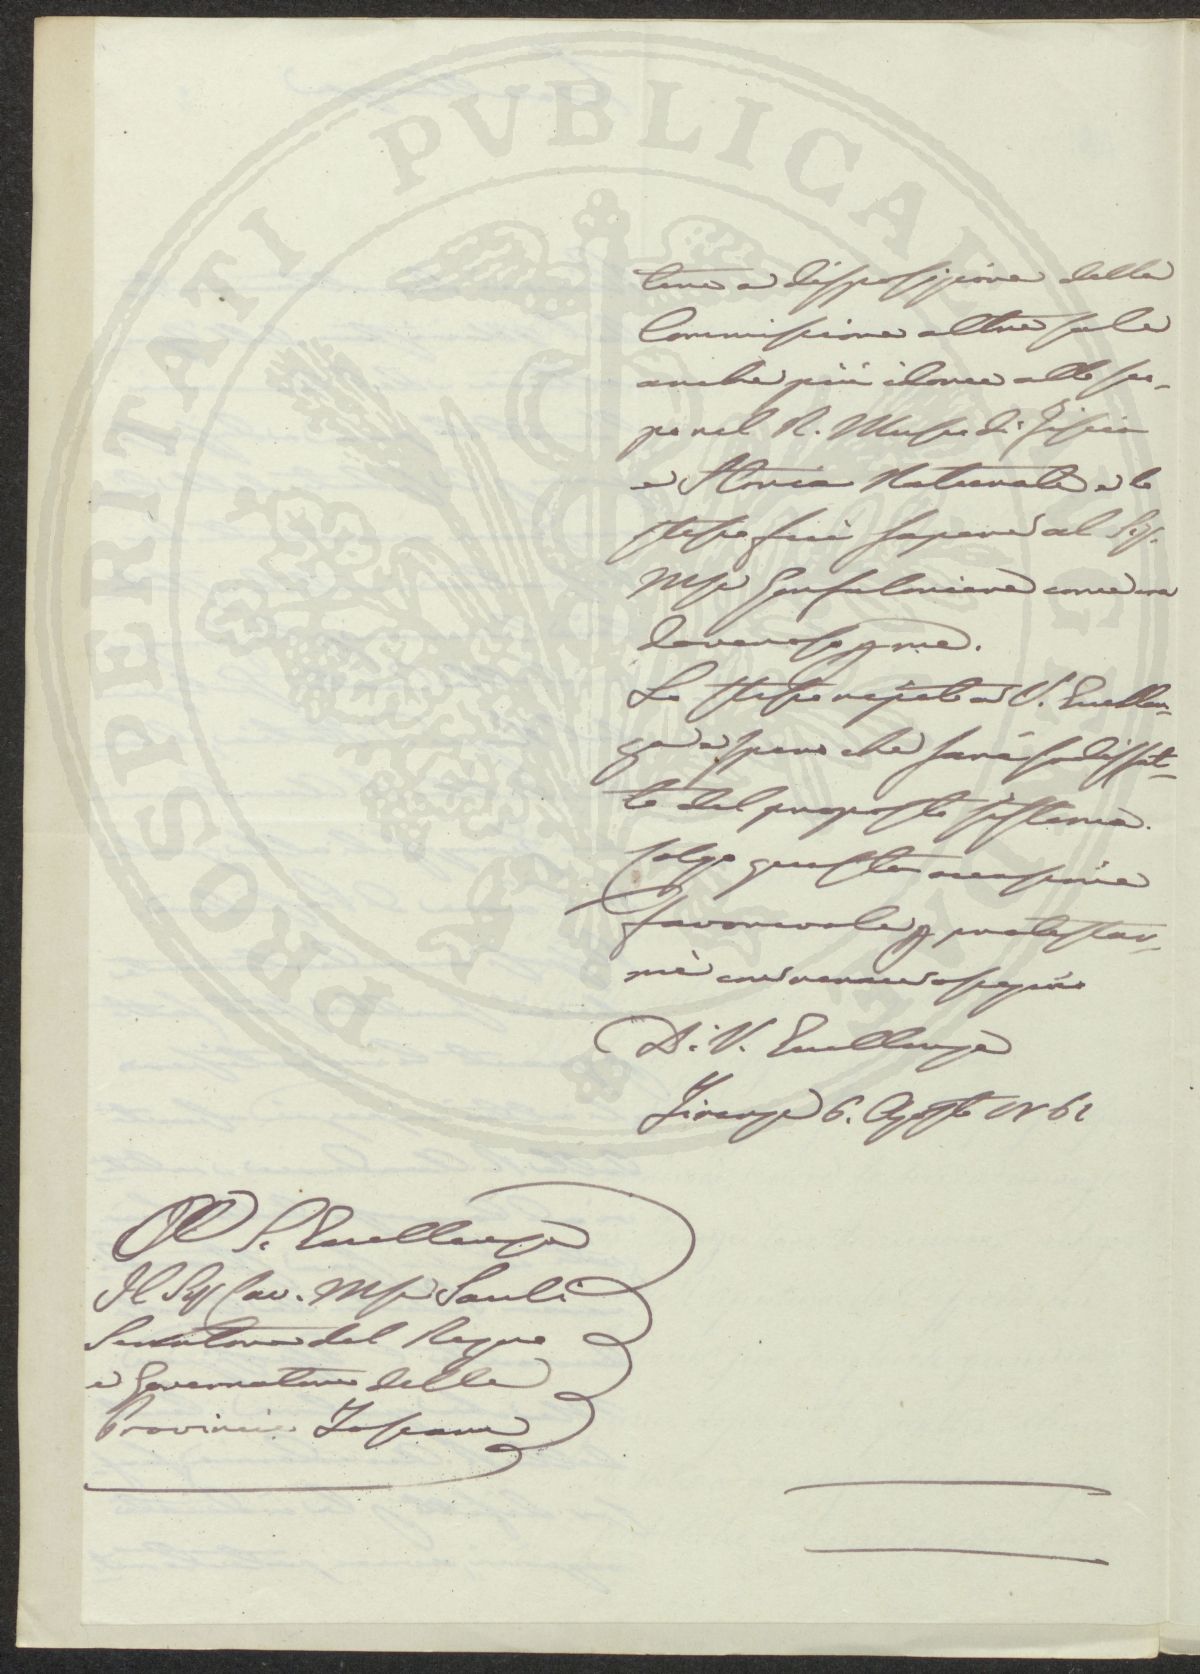 PROSPERITATI PVBLICAE AVGENDAE
tenere a disposizione della
Commissione altre sale
anche più idonee allo sco-
po nel R. Museo di Fisica
e Storia Naturale e lo
stesso feci sapere al Sig.
Mse Gonfaloniere come era
dover sop me.
Lo stesso ripeto a V. Eccellen-
za e spero che sarà sodisfat-
to del proposto sistema.
Colgo questa occasione
favorevole p protestar-
mi con verace ossequio
Di V. Eccellenza
Firenze 6. Agosto 1861
A S. Eccellenza
Il Sig Cav. Mse Sauli
Senatore del Regno
e Governatore delle
Provincie Toscane